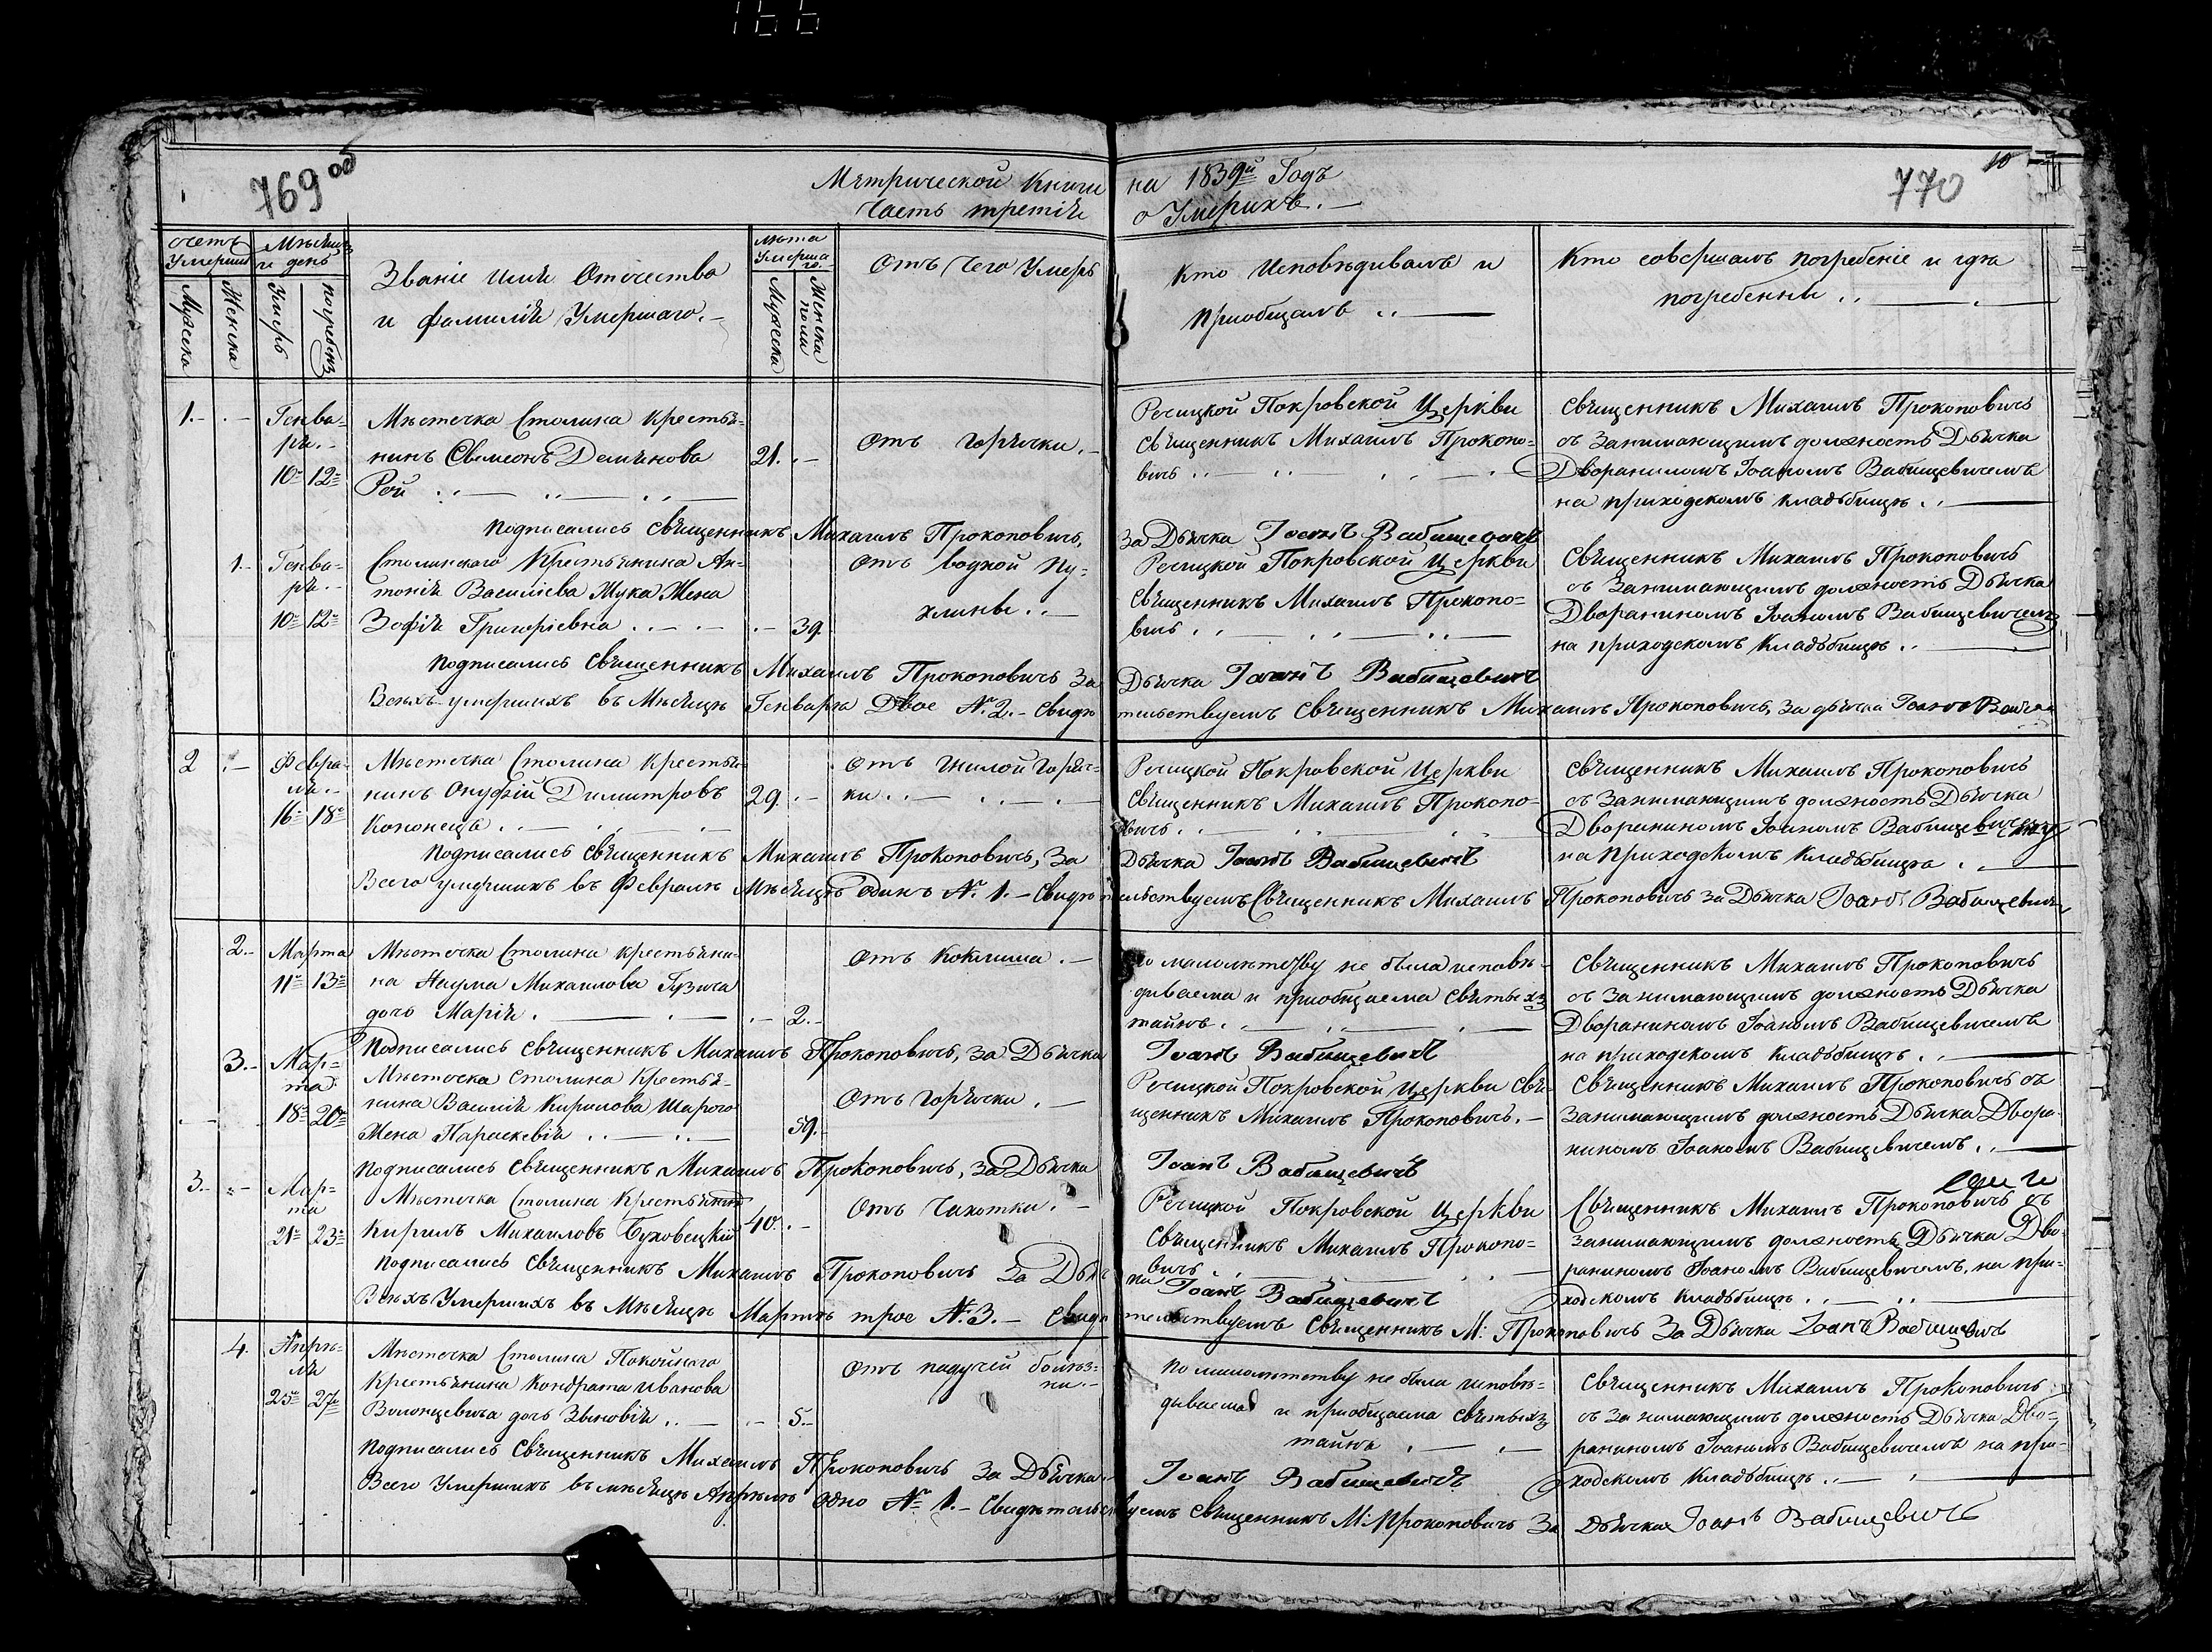 166
769 об
770
10
Метрической Книги на 1839й Годъ
Часть третия о Умерихъ.
счетъ Умерши
Мужеска
Женска
Месяцъ и день
Умеръ
погребенъ
Званіе имя Отечества
и фамилія Умершаго.
лета Умерша
го.
Мужеска
Женска пола
Отъ Чего Умеръ
Кто Исповедивалъ и
приобщалъ
Кто совершалъ погребеніе и где
погребенны
1. Генва-
ря.
10 12
Местечка Столина Крестья-
нинъ Свмеонъ Демянова
Рой
21.
Отъ горячки.
Речицкой Покровской Церкви
Священникъ Михаилъ Прокопо-
вичъ
Священникъ Михаилъ Прокоповичъ
съ Занимающимъ должность Дьячка
Дворяниномъ Іоаномъ Вабищевичемъ
на приходскомъ кладбищѣ
подписались Священникъ Михаилъ Прокоповичъ, За Дьячка Іоанъ Вабищевичъ
1. Генва-
ря.
10 12
Столинского Крестьянина Ан-
тонія Василіева Жука Жена
Зофія Григоріевна
39.
отъ водной пу-
хлины
Речицкой Покровской Церкви
Священникъ Михаилъ Прокопо-
вичъ
Священникъ Михаилъ Прокоповичъ
съ Занимающимъ должность Дьячка
Дворяниномъ Іоаномъ Вабищевичемъ
на приходскомъ Кладбищѣ
подписались Священникъ Михаилъ Прокоповичъ За Дьячка Іоанъ Вабищевичъ
Всехъ умершихъ въ Месяцѣ Генварѣ Двое №2.- Свидѣтельствуемъ Священникъ Михаилъ Прокоповичъ, За дьячка Іоанъ
2 Февра-
ля.
16 18
Местечка Столина Крестья-
нинъ Онуфрій Димитровъ
Кононецъ
29.
отъ гнилой горяч-
ки
Речицкой Покровской Церкви
Священникъ Михаилъ Прокопо-
вичъ.
Священникъ Михаилъ Прокоповичъ
съ Занимающимъ должность Дьячка
Дворяниномъ Іоаномъ Вабищевичемъ
на приходскомъ Кладбищѣ
подписались Священникъ Михаилъ Прокоповичъ, За Дьячка Іоанъ Вабищевичъ
Всего умершихъ въ Февралѣ Месяцѣ одинъ № 1.- Свидѣтельствуемъ Священникъ Михаилъ Прокоповичъ За Дьячка Іоанъ Вабищевичъ
2. Марта
11 13
Местечка Столина крестьяни-
на Наума Михаилова Гузича
дочь Марія
2.
отъ Коклиша.
по малолетству не была исповѣ-
дываема и приобщаема Святыхъ
тайнъ.
Священникъ Михаилъ Прокоповичъ
съ Занимающимъ должность Дьячка
Дворяниномъ Іоаномъ Вабищевичемъ
на приходскомъ Кладбищѣ.
Подписались Священникъ Михаилъ Прокоповичъ, За Дьячка Іоанъ Вабищевичъ
3. Мар-
та
18 20
Местечка Столина Крестья-
нина Василія Кирилова Шарого
Жена Параскевія
59.
отъ горячки.
Речицкой Покровской Церкви Свя-
щенникъ Михаилъ Прокоповичъ.
Священникъ Михаилъ Прокоповичъ съ
Занимающимъ должность Дьячка Дворя-
ниномъ Іоаномъ Вабищевичемъ
Подписались Священникъ Михаилъ Прокоповичъ, За Дьячка Іоанъ Вабищевичъ
3. Мар-
та
21 23
Местечка Столина Крестьянинъ
Кирилъ Михаиловъ Буховецкій
40.
Отъ Чахотки.
Речицкой Покровской Церкви
Священникъ Михаилъ Прокопо-
вичъ
Священникъ Михаилъ Прокоповичъ съ
занимающимъ должность Дьячка Дво-
ряниномъ Іоаномъ Вабищевичемъ, на при-
ходскомъ Кладбищѣ
подписались Священникъ Михаилъ Прокоповичъ За Дьячка Іоанъ Вабищевичъ
Всехъ Умершихъ въ Месяцѣ Мартѣ трое №3.- Свидѣтельствуемъ Священникъ М: Прокоповичъ За Дьячка Іоанъ Вабищевичъ
4. Апрѣ-
ля
25 27
Местечка Столина Покойнаго
Крестьянина Кондрата Иванова
дочь Зѣновія
5.
отъ падучей болѣз-
ни.
по малолетству не была исповѣ-
дываема и приобщаема Святыхъ
тайнъ
Священникъ Михаилъ Прокоповичъ
съ Занимающимъ должность Дьячка Дво-
ряниномъ Іоаномъ Вабищевичемъ на при-
ходскомъ Кладбищѣ
подписались Священникъ Михаилъ Прокоповичъ За Дьячка Іоанъ Вабищевичъ
Всего Умершихъ въ месяцѣ Апрѣлѣ одно № 1.- Свидѣтельствуемъ Священникъ М: Прокоповичъ За Дьячка Іоанъ Вабищевичъ